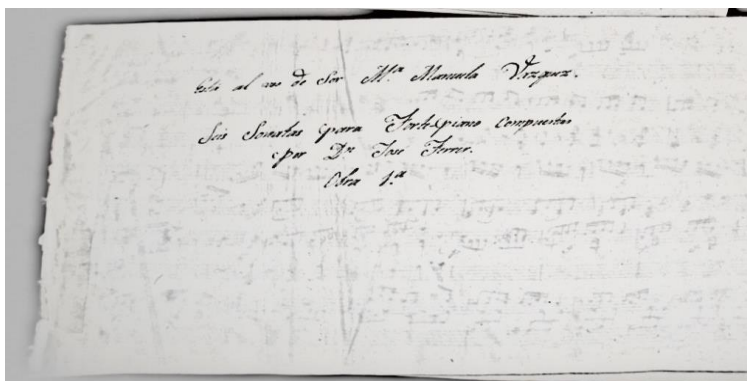 Está al uso de Sor Mª Manuela Vazquez.
Seis Sonatas para Fortepiano Compuestas
por Dn Jose Ferrer.
Obra 1.ª